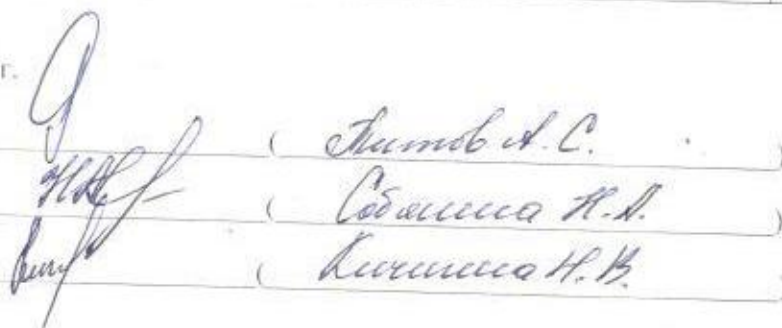 г.
( Титов А. С. )
( Собянина Н. А. )
( Кичигина Н. В.